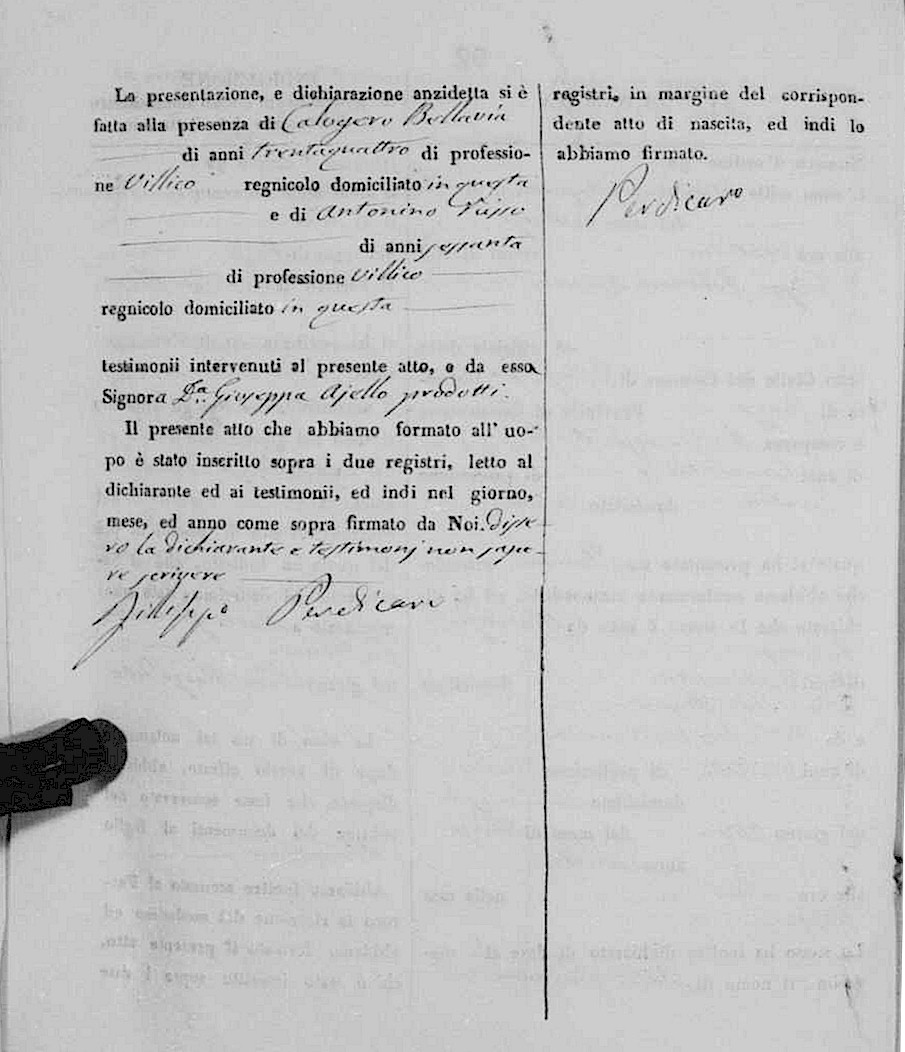 La presentazione, e dichiarazione anzidetta si è
fatta alla presenza di Calogero Bellavia
di anni trentaquattro di professio-
ne Villico regnicolo domiciliato in questa
e di Antonino Russo
di anni sessanta
di professione Villico
regnicolo domiciliato in questa
testimonii intervenuti al presente atto, e da essa
Signora D.a Giuseppa Ajello prodotti.
Il presente atto che abbiamo formato all' uo-
po è stato inscritto sopra i due registri, letto al
dichiarante ed ai testimonii, ed indi nel giorno,
mese, ed anno come sopra firmato da Noi. Disse-
ro la dichiarante e testimonj non sape-
re scrivere
Filippo Perdicaro
registri, in margine del corrispon-
dente atto di nascita, ed indi lo
abbiamo firmato.
Perdicaro